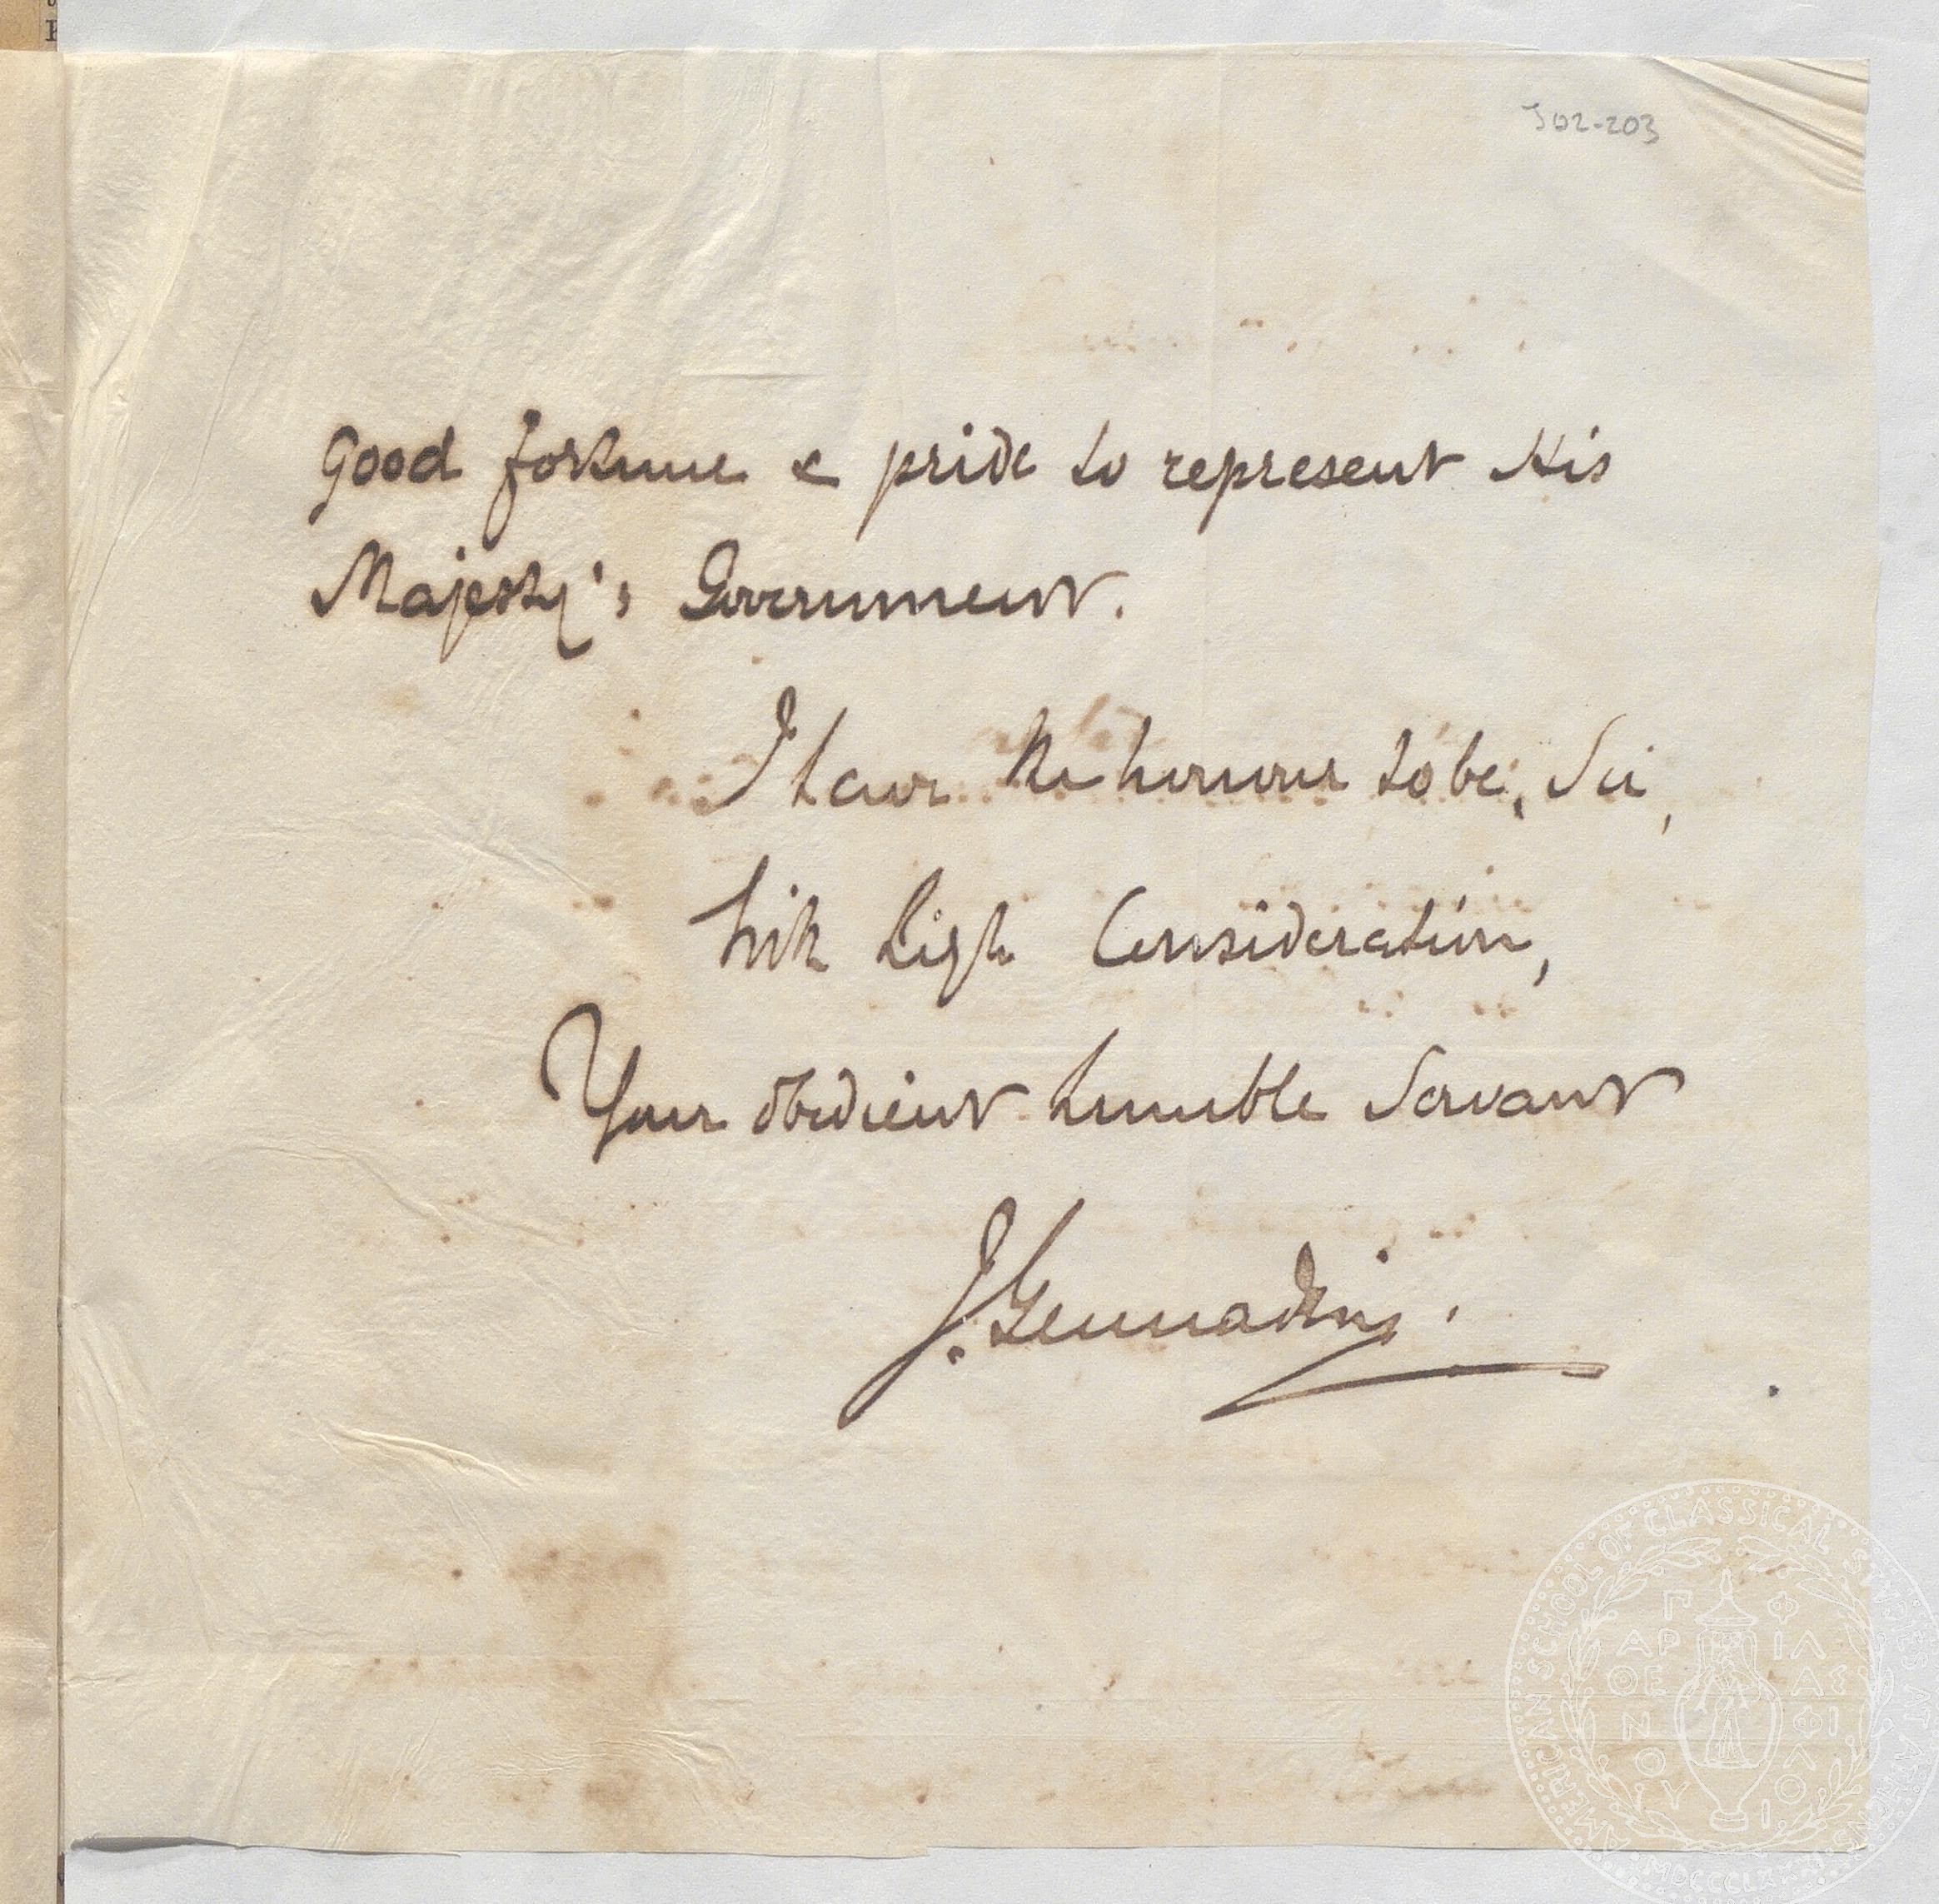 J02-203
Good fortune & pride to represent His
Majesty's Government.
I have the honour to be, Sir,
with high Consideration,
Your obedient humble Servant
J. Gennadius.
AMERICAN SCHOOL OF CLASSICAL STVDIES AT ATHENS
ΠΑΡΘΕΝΟΥ ΦΙΛΑΣ ΦΙΛΟΙ